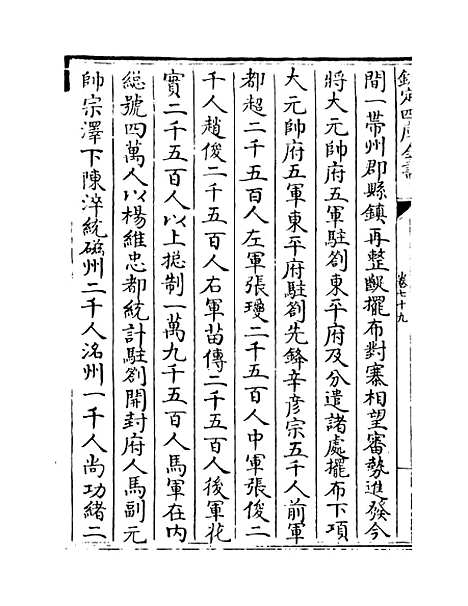 欽定四庫全書
卷七十九
間一帶州郡縣鎮再整龊擺布對寨相望審勢進發今
將大元帥府五軍駐劄東平府及分遣諸處擺布下項
大元帥府五軍東平府駐劄先鋒辛彦宗五千人前軍
都超二千五百人左軍張瓊二千五百人中軍張俊二
千人趙俊二千五百人右軍苗傅二千五百人後軍花
實二千五百人以上摠制一萬九千五百人馬軍在内
總號四萬人以楊維忠都統計駐劄開封府人馬副元
帥宗澤下陳淬統磁州二千人洺州一千人尚功緒二